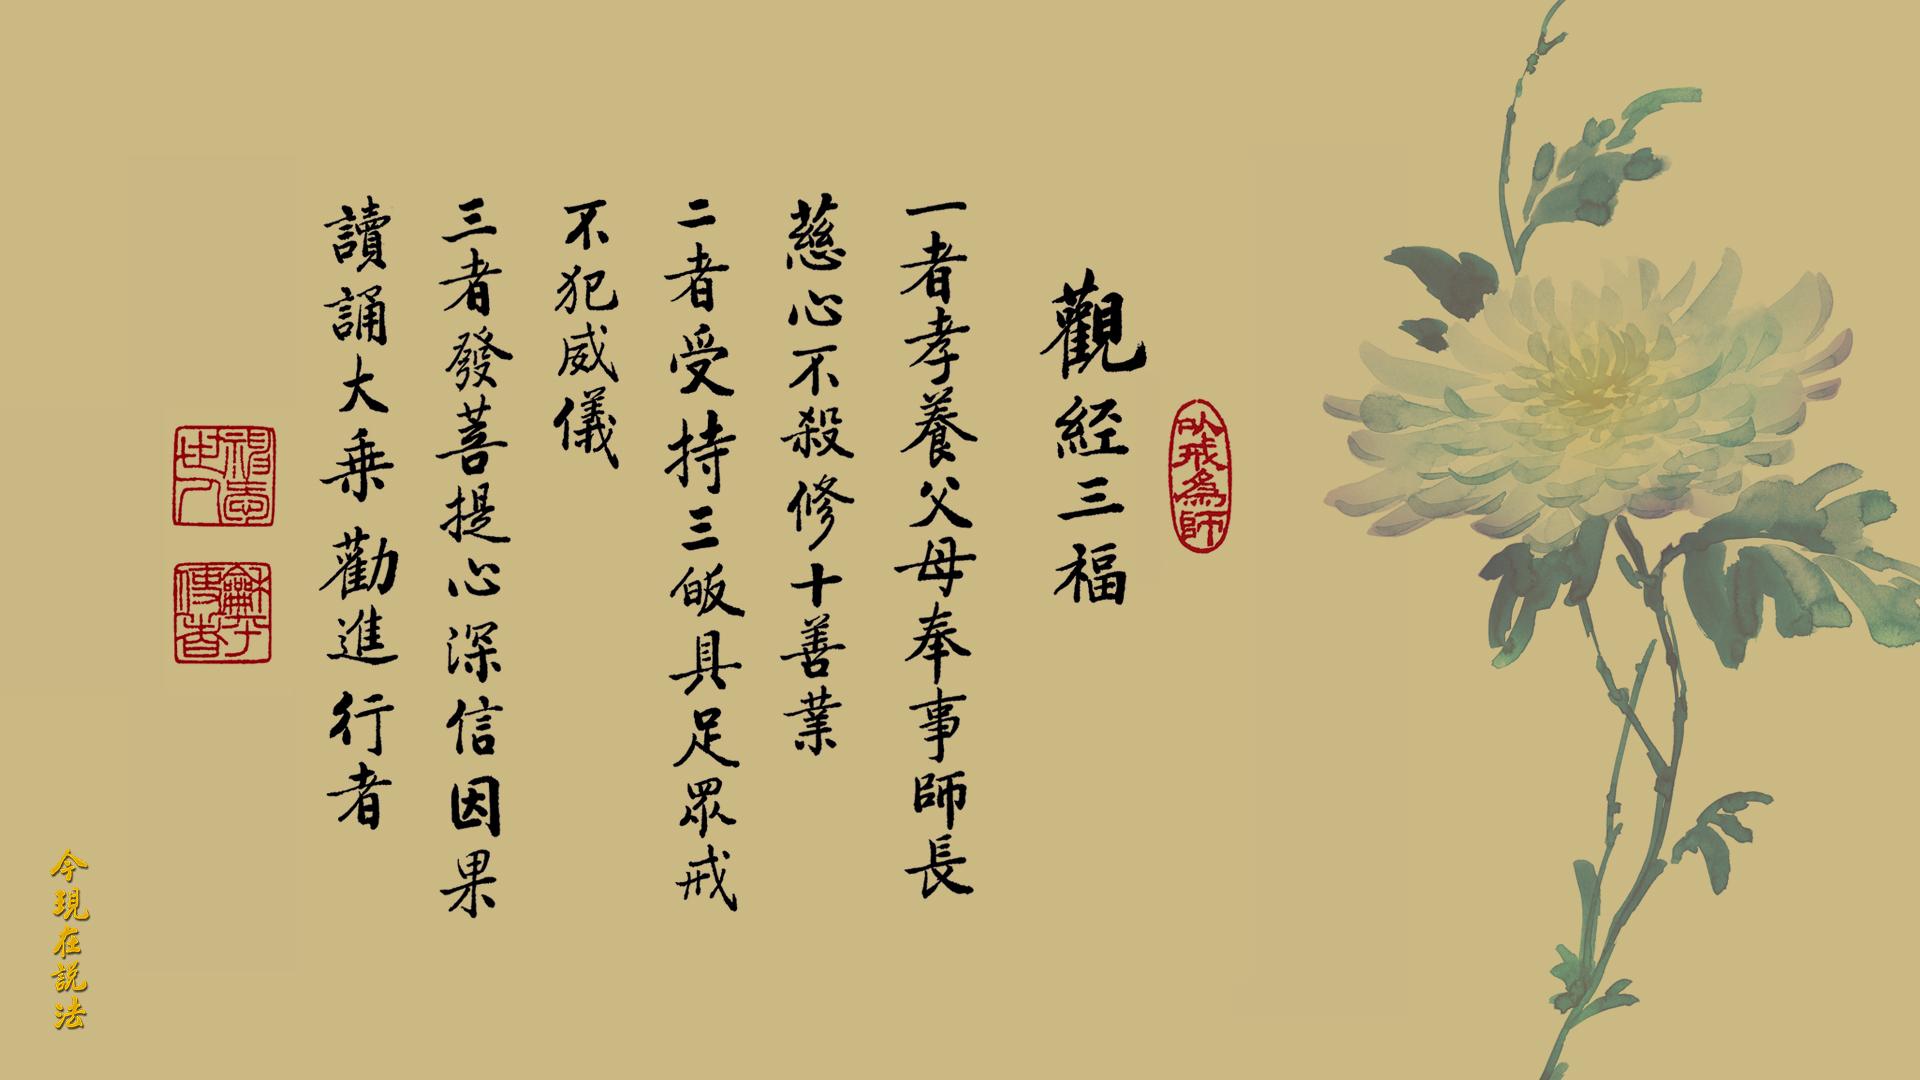 以戒為師
觀經三福
一者孝養父母奉事師長
慈心不殺修十善業
二者受持三皈具足眾戒
不犯威儀
三者發菩提心深信因果
讀誦大乘勸進行者
今現在說法